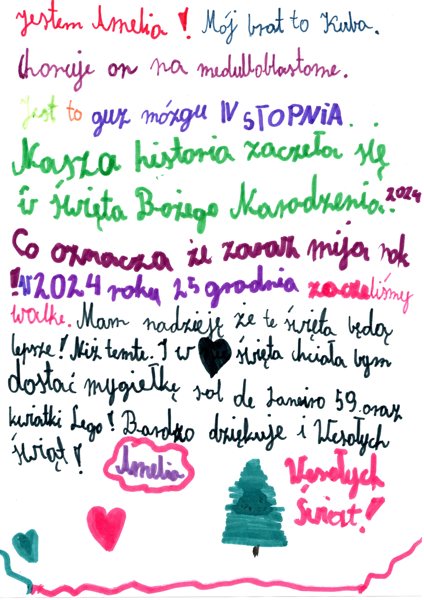 Jestem Amelia! Mój brat to Kuba.
Choruje on na medulloblastome.
Jest to guz mózgu IV STOPNIA.
Nasza historia zaczeła się
w święta Bożego Narodzenia. 2024
Co oznacza że zaraz mija rok
! W 2024 roku 25 grudnia zaczeliśmy
walke. Mam nadzieję że te święta będą
lepsze! Niż temte. I w święta chciała bym
dostać mygiełkę sol de Janeiro 59. oraz
kwiatki Lego! Bardzo dziękuje i Wesołych
świąt!
Amelia
Wesołych
Świat!